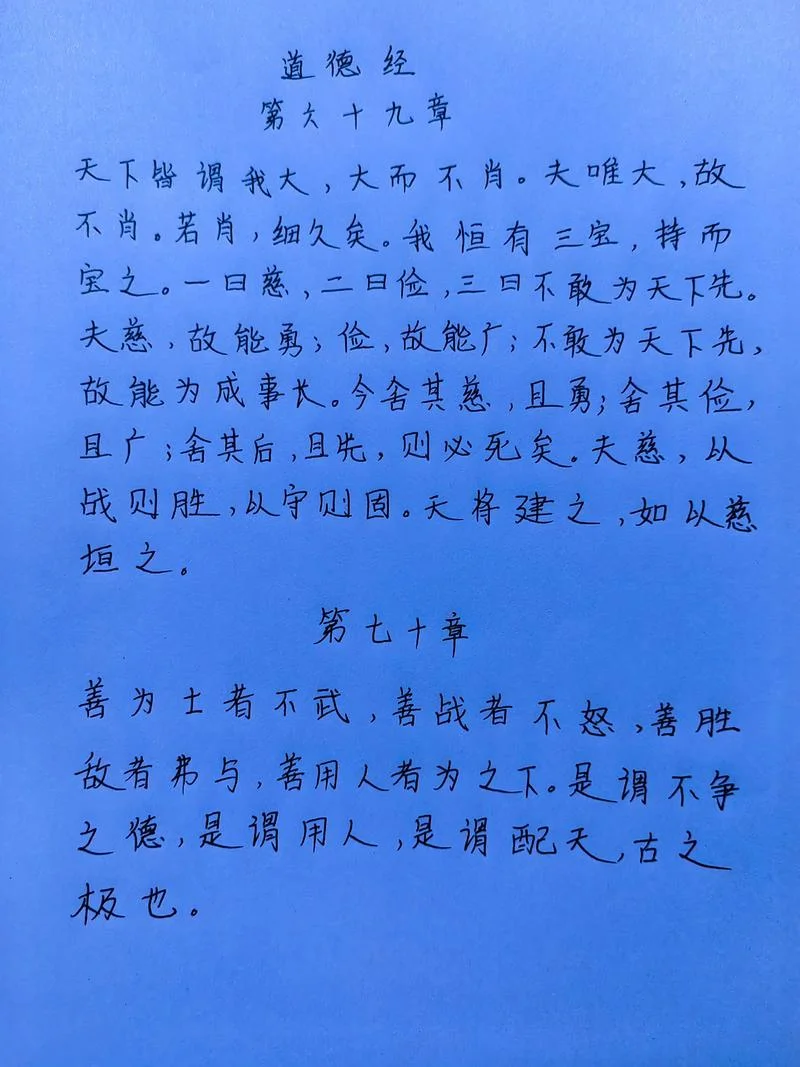 道德经
第六十九章
天下皆谓我大，大而不肖。夫唯大，故
不肖。若肖，细久矣。我恒有三宝，持而
宝之。一曰慈，二曰俭，三曰不敢为天下先。
夫慈，故能勇；俭，故能广；不敢为天下先，
故能为成事长。今舍其慈，且勇；舍其俭，
且广；舍其后，且先，则必死矣。夫慈，以
战则胜，以守则固。天将建之，如以慈
垣之。
第七十章
善为士者不武，善战者不怒，善胜
敌者弗与，善用人者为之下。是谓不争
之德，是谓用人，是谓配天，古之
极也。